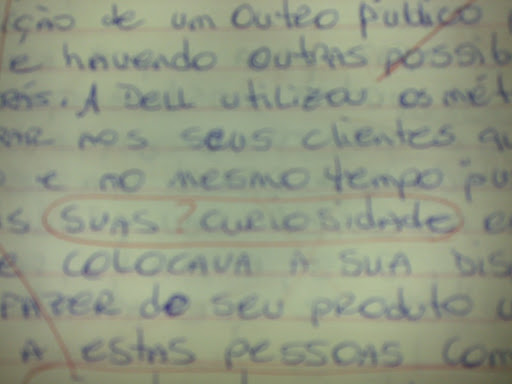 ição de um outro publico
e havendo outras possib
eis. A Dell utilizou os mét
nos seus clientes qu
e no mesmo tempo pu
s suas ? curiosidade e
e colocava a sua dis
fazer do seu produto u
a estas pessoas com